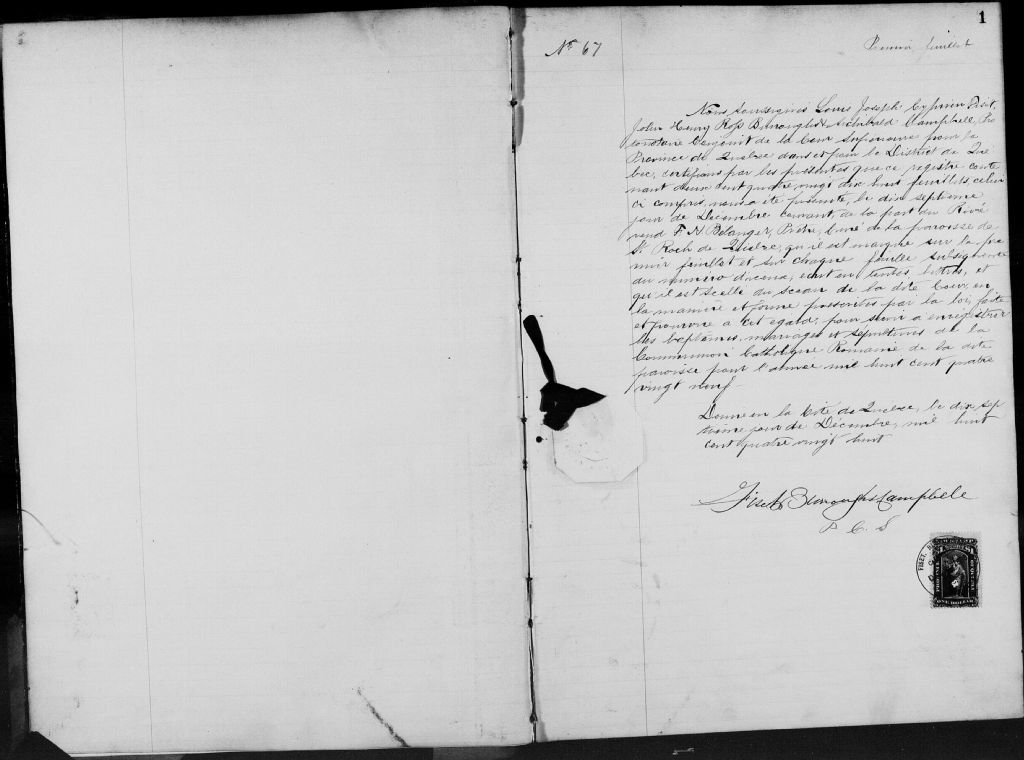 1
No 67
Premier feuillet
Nous soussignés Louis Joseph Cyprien Fiset,
John Henry Ross Burroughs & Archibald Campbell, Pro
tonotaire Conjoint de la Cour Supérieure pour la
Province de Québec dans et pour le District de Qué
bec, certifions par les présentes que ce registre conte
nant deux cent quatre vingt dix huit feuillets, celui
ci compris, nous a été présenté, le dix septième
jour de Décembre courant, de la part du Révé
rend F. H. Belanger, Prêtre, Curé de la paroisse de
St Roch de Québec, qu'il est marqué sur le pre
mier feuillet et sur chaque feuille subséquente
du numéro d'iceux, écrit en toutes lettres, et
qu'il est scellé du sceau de la dite Cour, en
la manière et forme prescrites par la loi, faite
et pourvue à cet égard; pour servir à enregistrer
les baptêmes, mariages et sépultures de la
Communion Catholique Romaine de la dite
paroisse pour l'année mil huit cent quatre
vingt neuf.
Donné en la Cité de Québec, le dix sep
tième jour de Décembre, mil huit
cent quatre vingt huit
Fiset Burroughs Campbell
P. C. S
FISET,
ONE DOLLAR